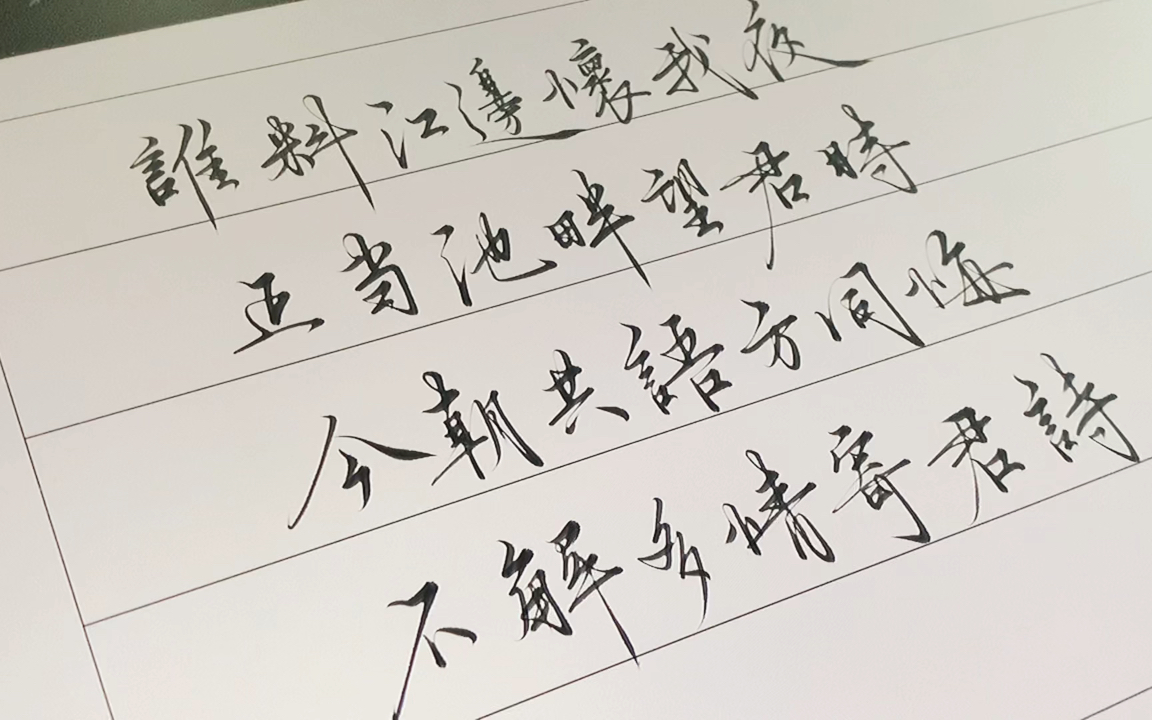 誰料江邊懷我夜
正当池畔望君時
今朝共語方同悔
不解多情寄君詩